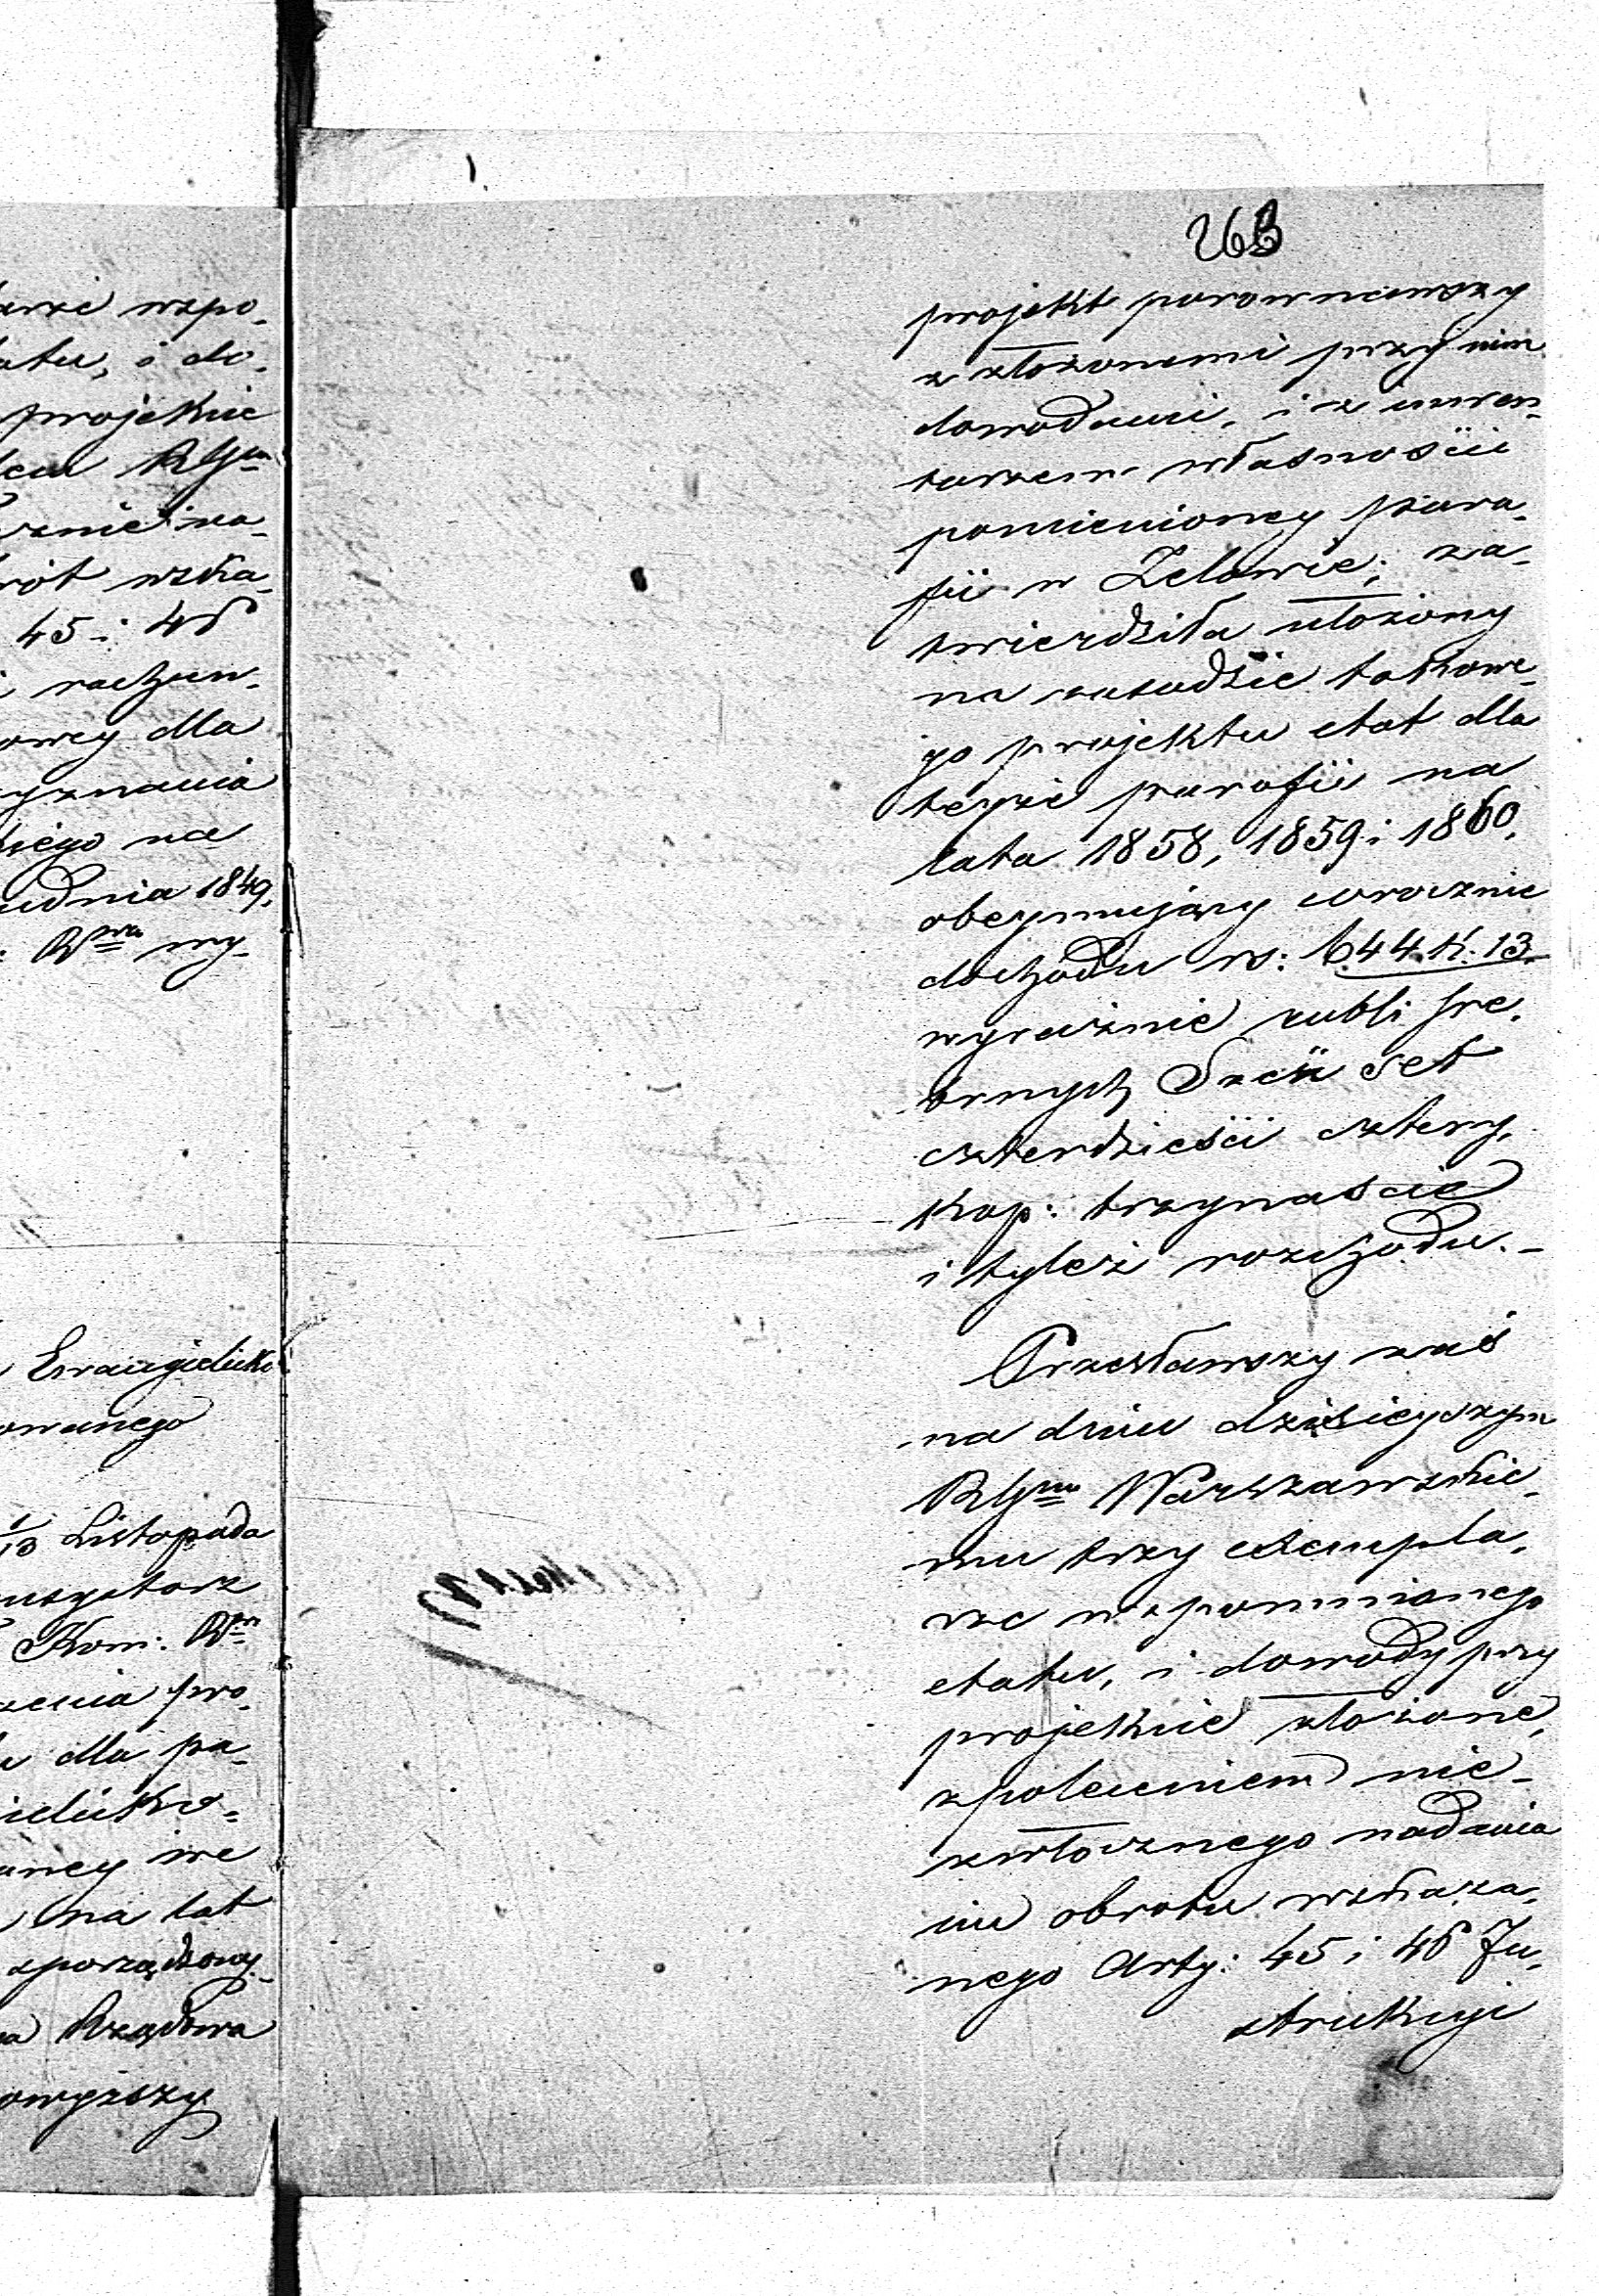 arze wspo-
atu, i do-
projekcie
RGu
wskа-
45 i 46
rachun-
owey dla
yznania
kiego na
udnia 1849,
wy-
Ewangielicko
owanego
1/13 Listopada
Kom: Rwa
zenia pro-
dla pa-
ielicko-
aney we
na lat
sporządzony
Rządowa
owyższy
263
projekt porownawszy
z złożonemi przy nim
dowodami, i z inwen-
tarzem własności
pomienioney para-
fii w Zelowie; za-
twierdziła ułożony
na zasadzie takowe-
go projektu etat dla
teyże parafii na
lata 1858, 1859 i 1860,
obeymujący corocznie
dochodu rs: 644 k: 13.
wyraźnie rubli sre-
brnych Sześć set
czterdzieści cztery,
kop: trzynaście
i tyleż rozchodu.-
Przesławszy zaś
na dniu dzisieyszym
RGmu Warszawskie-
mu trzy exempla-
rze wspomnianego
etatu, i dowody przy
projekcie złożone,
z poleceniem nie-
zwłocznego nadania
im obrotu wskaza-
nego Arty: 45 i 46 In-
strukcyi